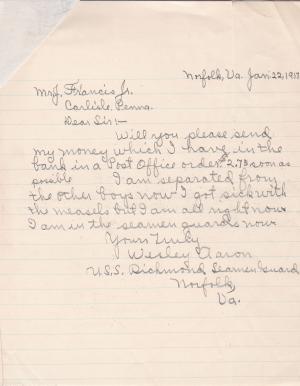 Norfolk, Va. Jan. 22, 1917
Mr. J. Francis Jr.
Carlisle, Penna.
Dear Sir:-
Will you please send
my money which I have in the
bank in a Post Office order $2.73 soon as
possible I am separated from
the other boys now I got sick with
the measels but I am all right now
I am in the seamen guards now
Yours Truly
Wesley Aaron
U.S.S. Richmond Seamen Guard
Norfolk,
Va.